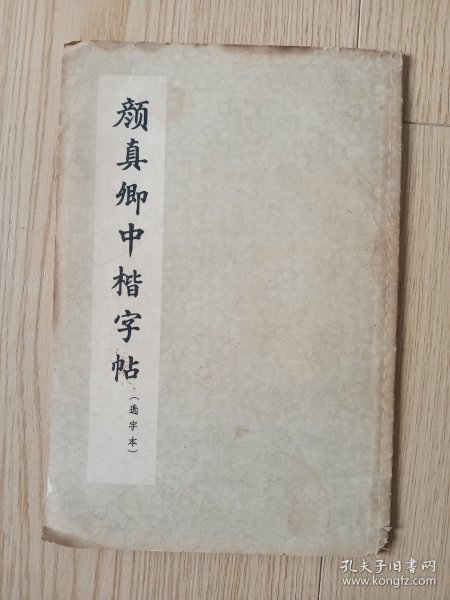 颜真卿中楷字帖
（选字本）
孔夫子旧书网
www.kongfz.com